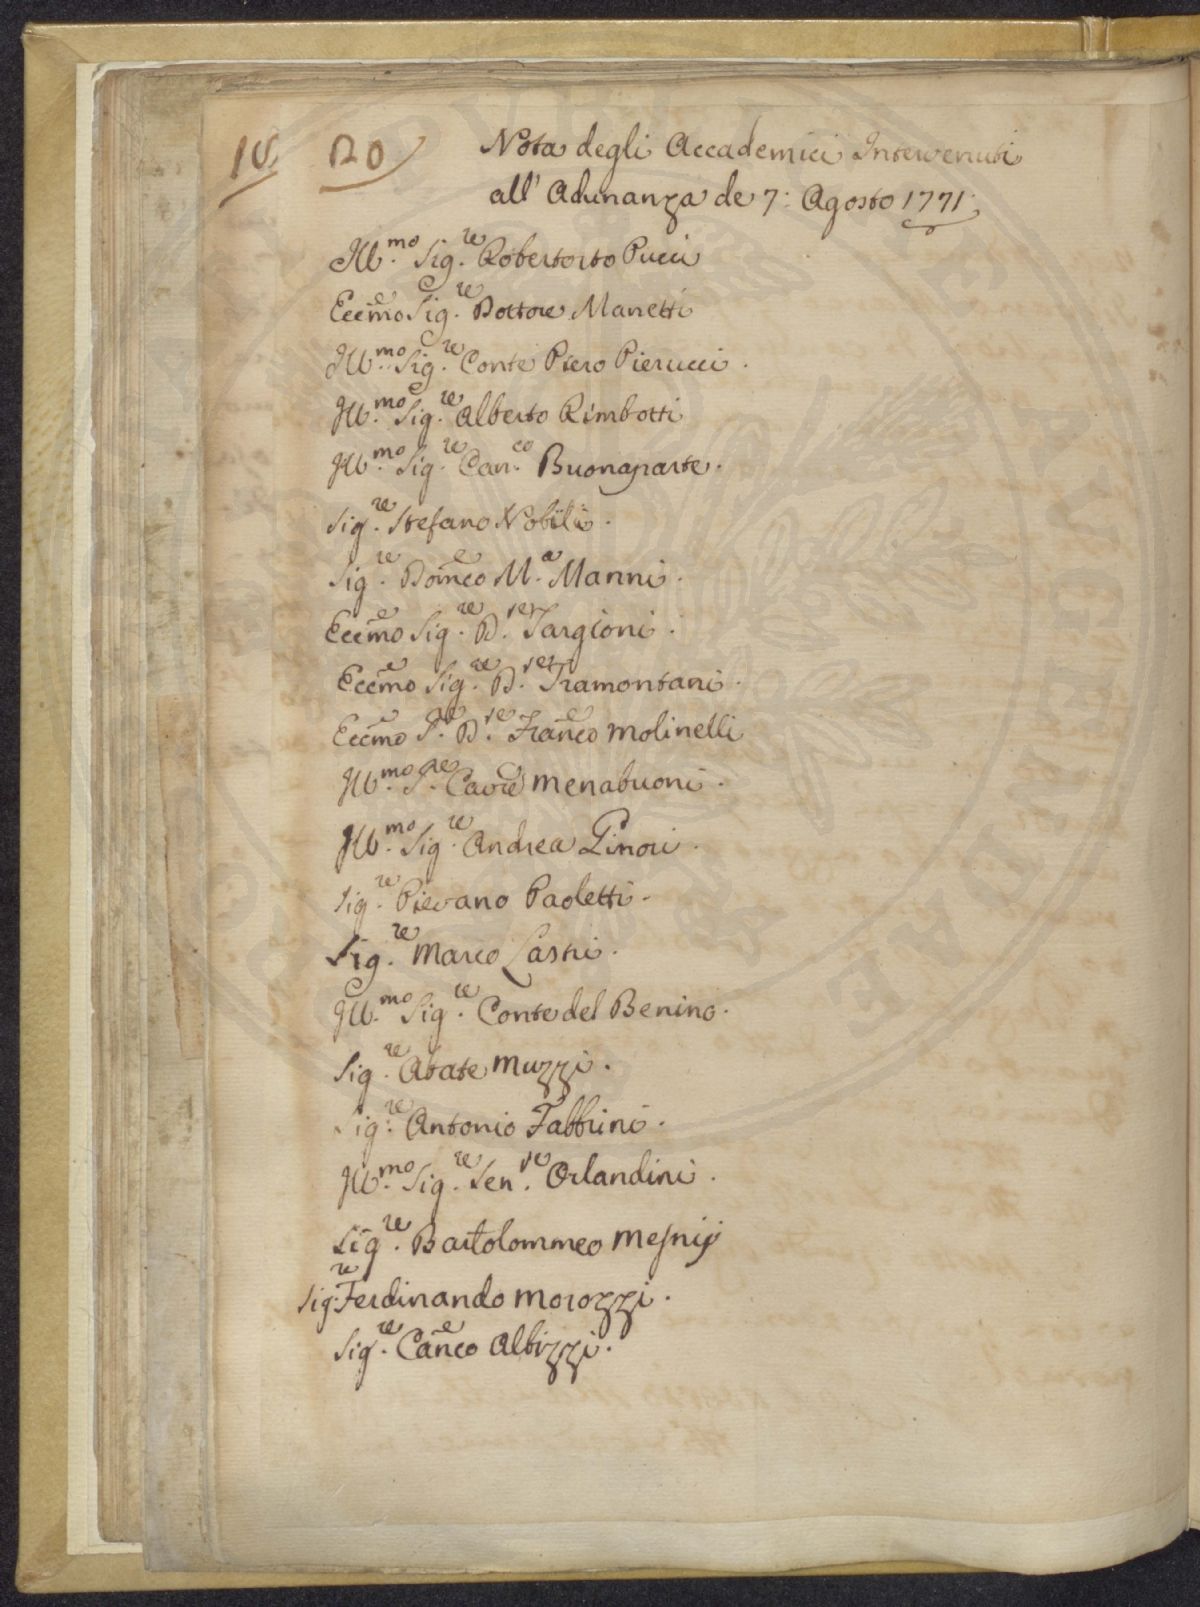 18 120
Nota degli Accademici Intervenuti
all' Adunanza de 7: Agosto 1771.
Ill.mo Sig.re Robertorto Pucci
Eccmo Sig.re Dottore Manetti
Ill.mo Sig.re Conte Piero Pierucci.
Ill.mo Sig.re Alberto Rimbotti
Ill.mo Sig.re Can.co Buonaparte.
Sig.re Stefano Nobili.
Sig.re Domeco M.a Manni.
Eccmo Sig.re D.re Targioni.
Eccmo Sig.re D.re Tramontani.
Eccmo S.re D.re Franco Molinelli
Ill.mo S.re Cavre Menabuoni.
Ill.mo Sig.re Andrea Ginori.
Sig.re Pievano Paoletti.
Sig.re Marco Lastri.
Ill.mo Sig.re Conte del Benino.
Sig.re Abate Muzzi.
Sig.re Antonio Fabbrini.
Ill.mo Sig.re Sen.re Orlandini.
Sig.re Bartolommeo Mesnij
Sig.re Ferdinando Morozzi.
Sig.re Canco Albizzi.